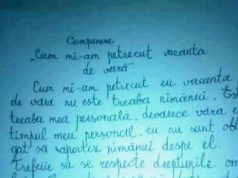 Compunere
„Cum mi-am petrecut vacanța
de vară"
Cum mi-am petrecut eu vacanța
de vara nu este treaba nimănui. Est
treaba mea personală, deoarece vara e
timpul meu personal, eu nu sunt obli
gat să raportez nimănui despre el.
Trebuie să se respecte drepturile om